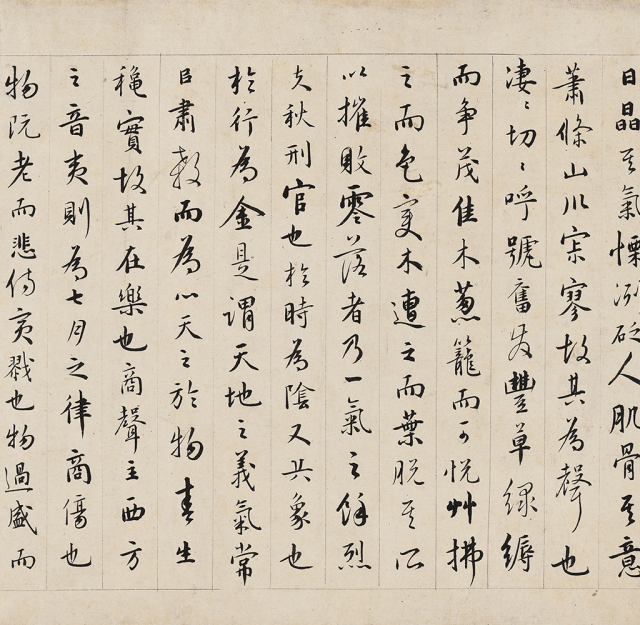 日晶其氣慄冽砭人肌骨其意
蕭條山川寂寥故其為聲也
凄〻切〻呼號奮發豐草綠縟
而争茂佳木葱籠而可悅艸拂
之而色変木遭之而葉脫其所
以摧敗零落者乃一氣之餘烈
夫秋刑官也於時為陰又兵象也
於行為金是謂天地之義氣常
以肅殺而為心天之於物春生
穐實故其在樂也商聲主西方
之音夷則為七月之律商傷也
物既老而悲傷夷戮也物過盛而